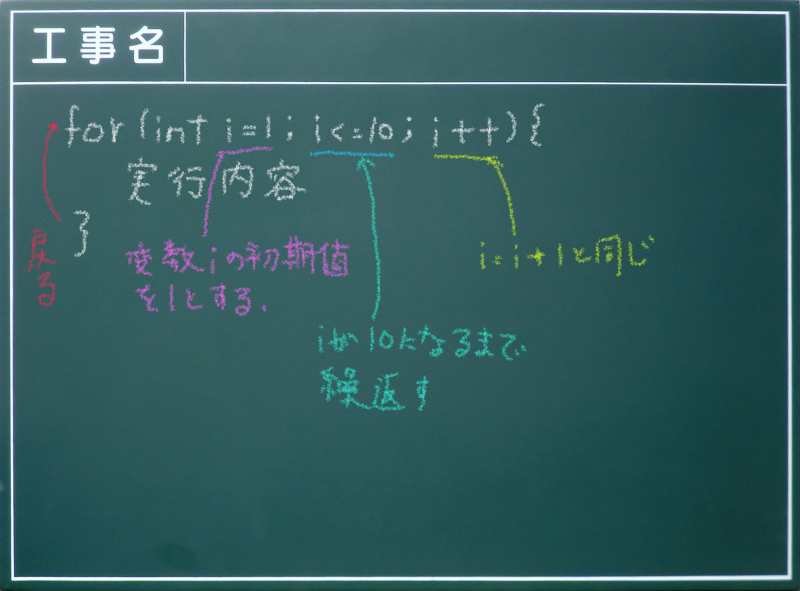 工事名
for(int i=1; i<=10; i++){
実行内容
}
戻る
変数iの初期値
を1とする.
i=i+1と同じ
iが10になるまで
繰返す